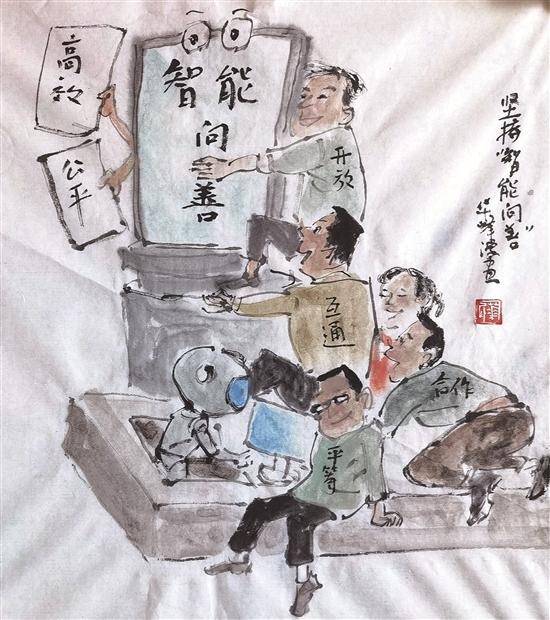 高效
公平
智能
向善
开放
互通
合作
平等
坚持"智能向善"